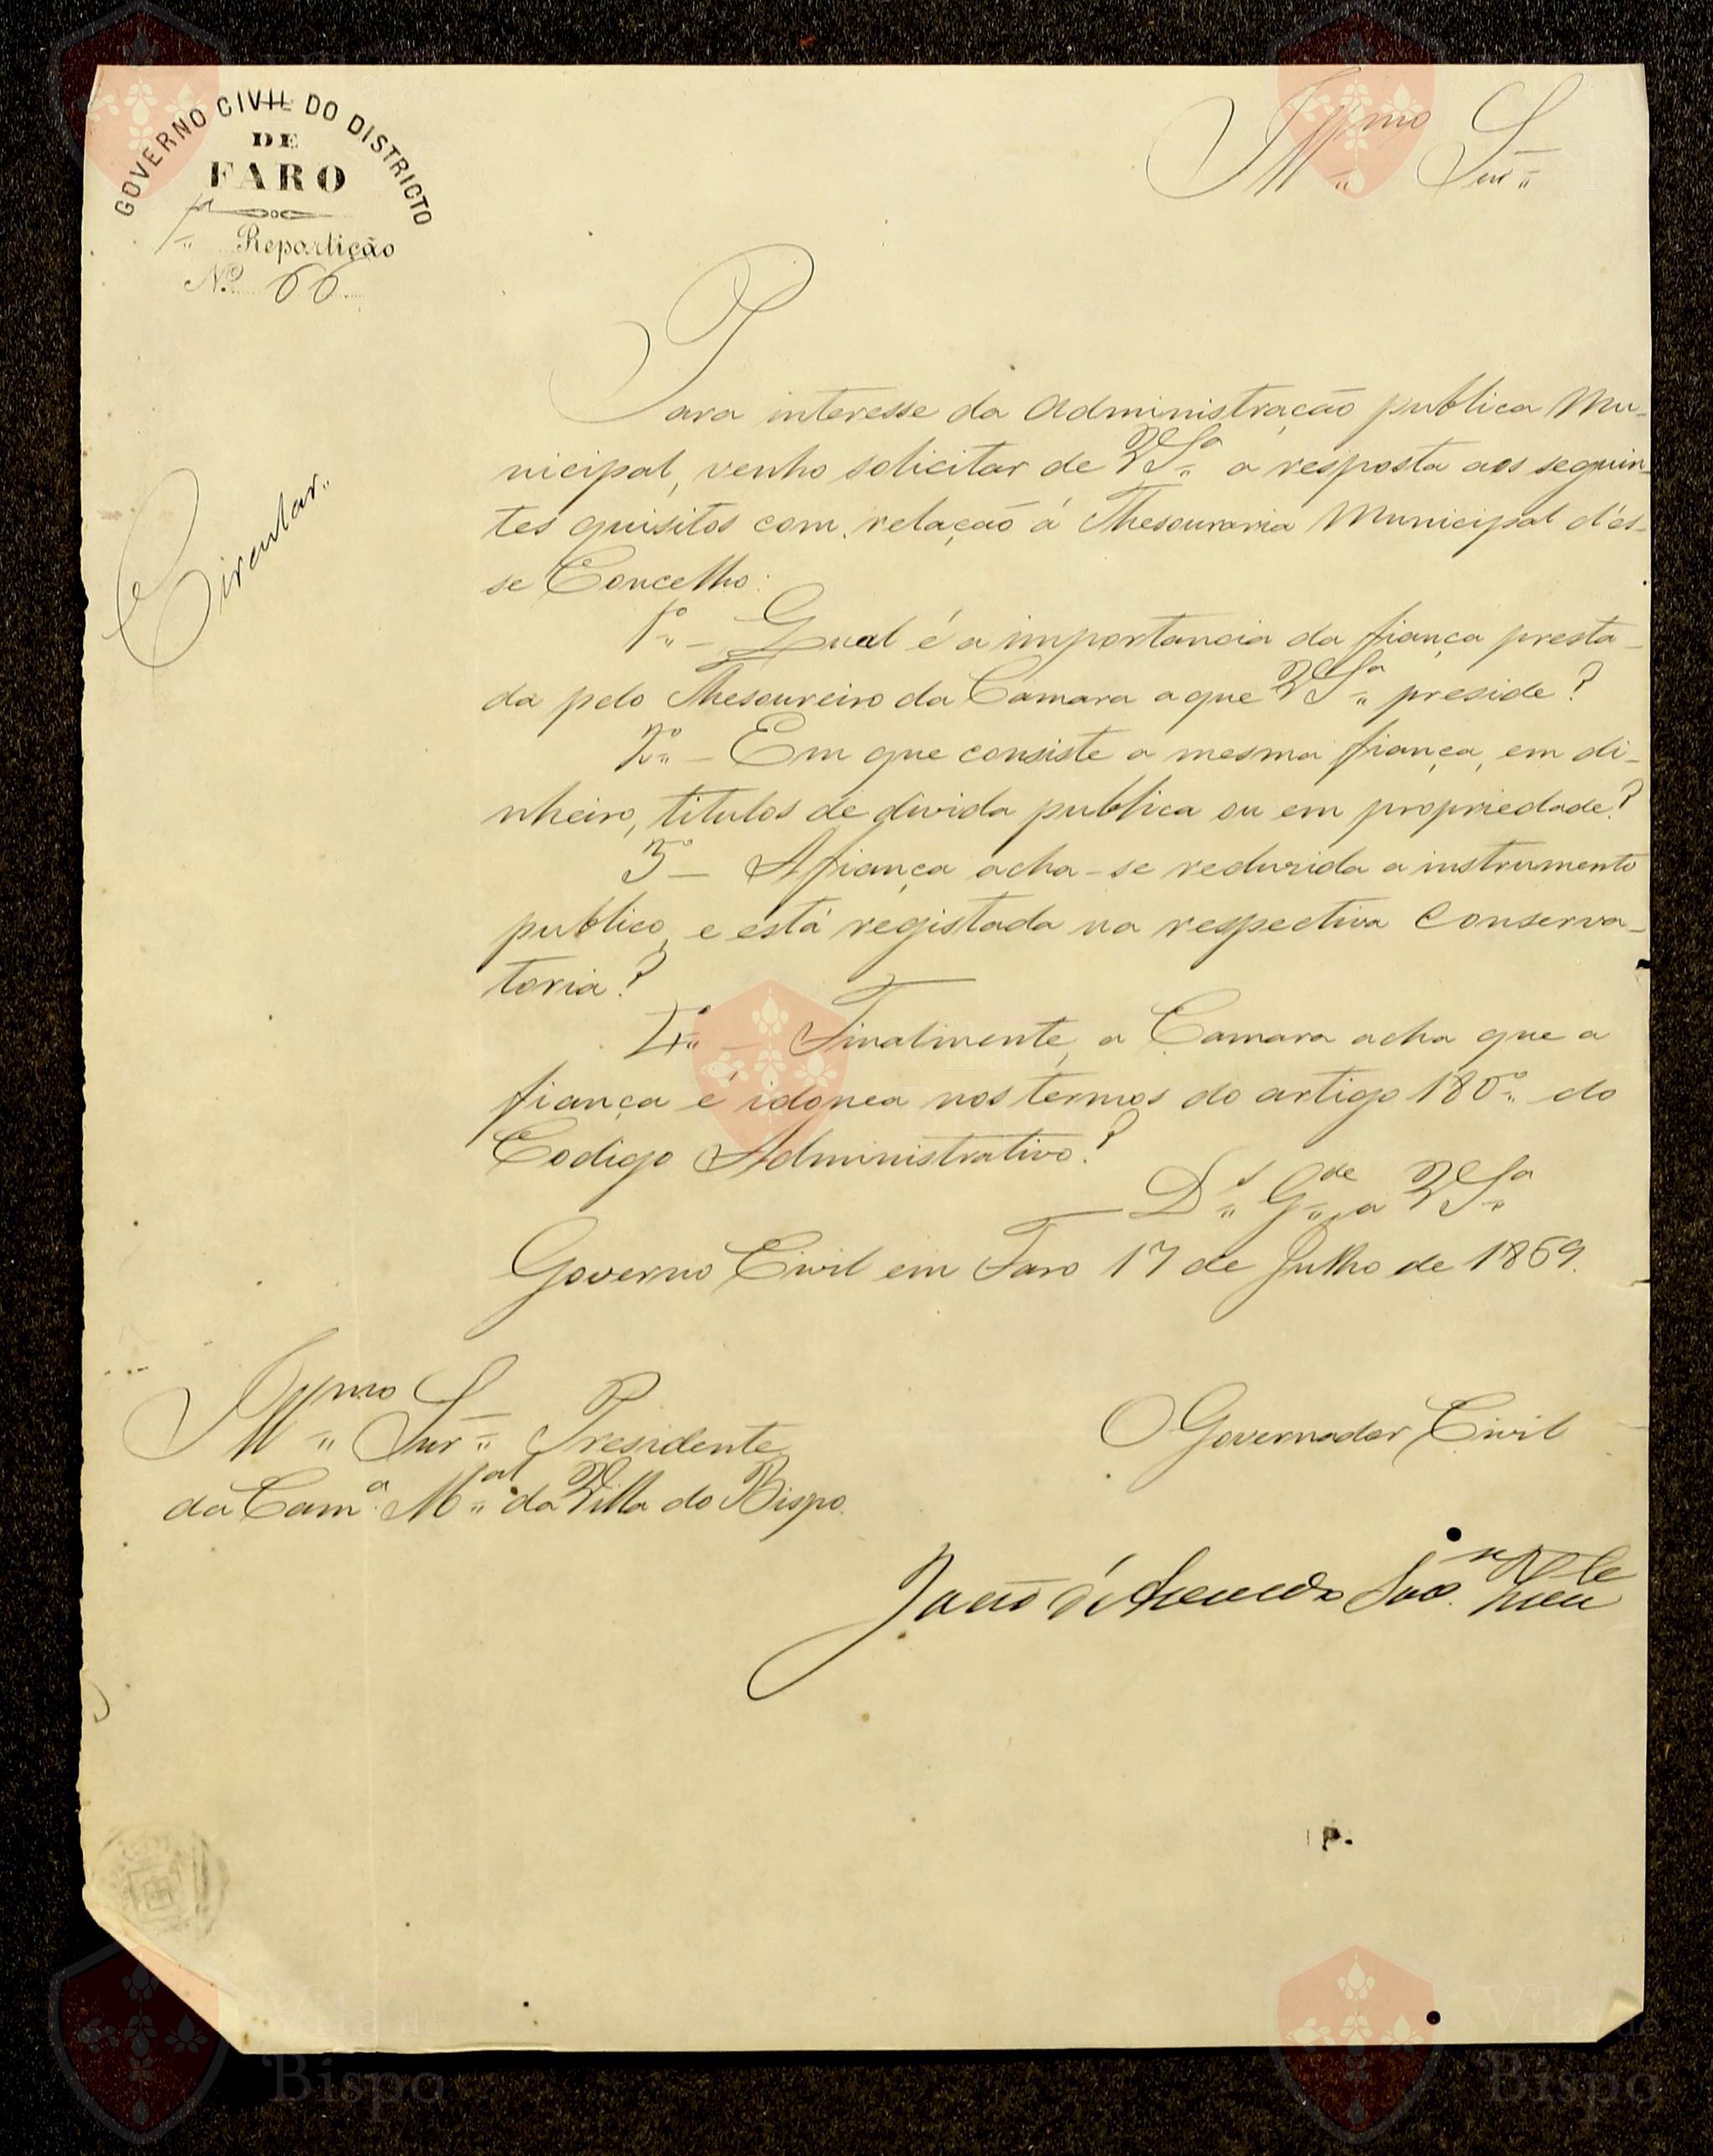 GOVERNO CIVIL DO DISTRICTO
DE
FARO
1ª Repartição
Nº 66
Illmo Snr
Circular
Para interesse da Administração publica Mu-
nicipal, venho solicitar de VSª a resposta aos seguin-
tes quisitos com relação á Thesouraria Municipal d'es-
se Concelho:
1º - Qual é a importancia da fiança presta-
da pelo Thesoureiro da Camara a que VSª preside?
2º - Em que consiste a mesma fiança, em di-
nheiro, titulos de divida publica ou em propriedade?
3º - A fiança acha-se reduzida a instrumento
publico, e está registada na respectiva Conserva-
toria?
4º - Finalmente, a Camara acha que a
fiança é idonea nos termos do artigo 180º do
Codigo Administrativo?
Ds Gde a VSª
Governo Civil em Faro 17 de Julho de 1869.
Illmo Snr Presidente
da Camª Mal da Villa do Bispo.
O Governador Civil
João
Vila do
Bispo
Bispo